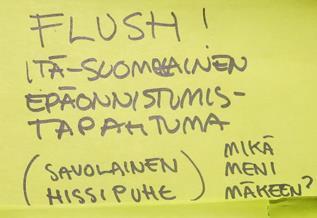 FLUSH!
ITÄ-SUOMALAINEN
EPÄONNISTUMIS-
TAPAHTUMA
(SAVOLAINEN
HISSIPUHE)
MIKÄ
MENI
MÄKEEN?